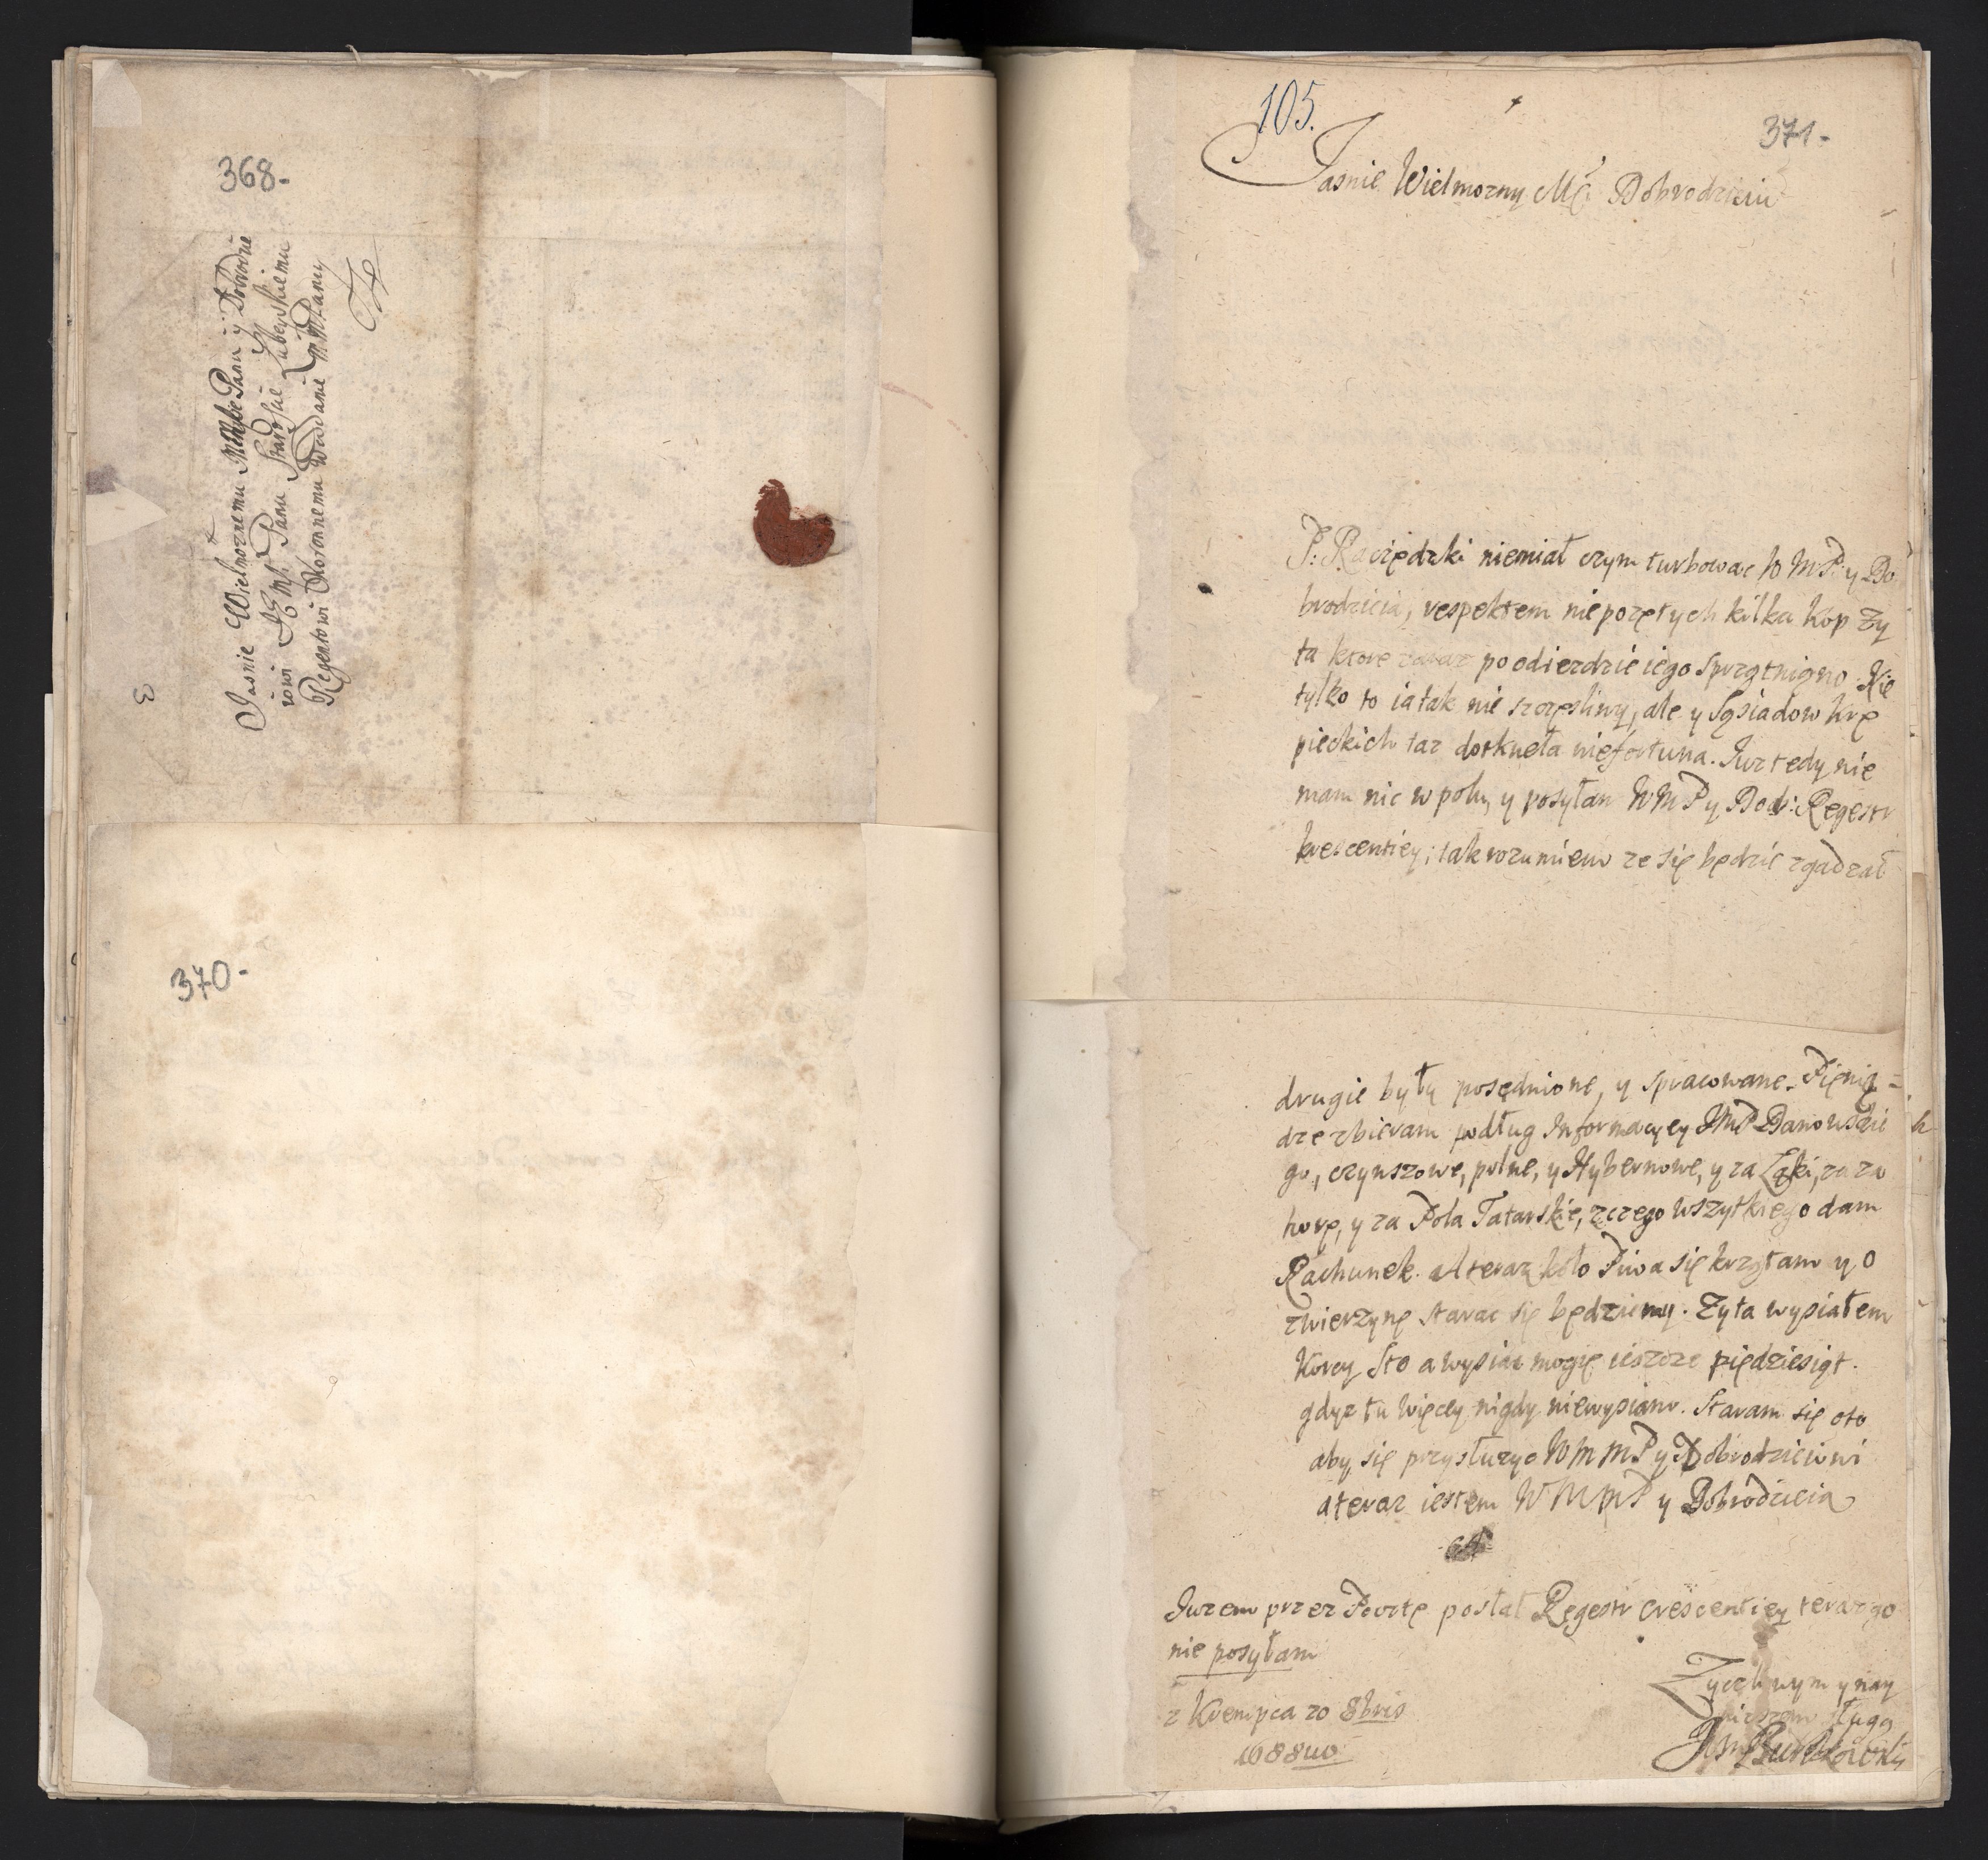 368-
Jasnie Wielmoznemu Panu y Dobrodzie
iowi JE Msi Panu Staroscie Lubelskiemu
Regentowi Koronnemu
3
370-
105.
371-
Jasnie Wielmozny Mći Dobrodzieiu
P: Raciędzki niemiał czym turbowac W M P: y Do
brodzieia, respektem niepozętych kilka Kop Zy
ta ktore zaraz poodiezdzie iego sprzątnięno. Nie
tylko to ia tak nie szczęsliwy, ale y Sąsiadow Krę
pieckich taz dotkneła niefortuna. Iuz tedy nie
mam nic w polu, y posyłam W M P y Dob: Regestr
krescentiey; tak rozumiem ze się będzie zgadzał
drugie były posędnione, y spracowane. Pienią=
dze zbieram podług Informacyey JMP Danowskie
go, czynszowe, polne, y Hybernowe, y za Łąki, za za
horę, y za Pola Tatarskie, z czego wszytkiego dam
Rachunek. A teraz koło Piwa się krzątam y o
zwierzynę starac się będziemy. Zyta wysiałem
Korcy Sto a wysiac mogę ieszcze piędziesiąt.
gdyz tu więcey nigdy niewysiano. Staram się oto
aby się przysłuzyc W M M P y Dobrodzieiowi
a teraz iestem W M M P y Dobrodzieia
Iuzem przez Pocztę posłał Regestr crescentiey teraz go
nie posyłam
z Krempca 20 8bris
1688uo
Zyczliwym y nay
nizszym sługą